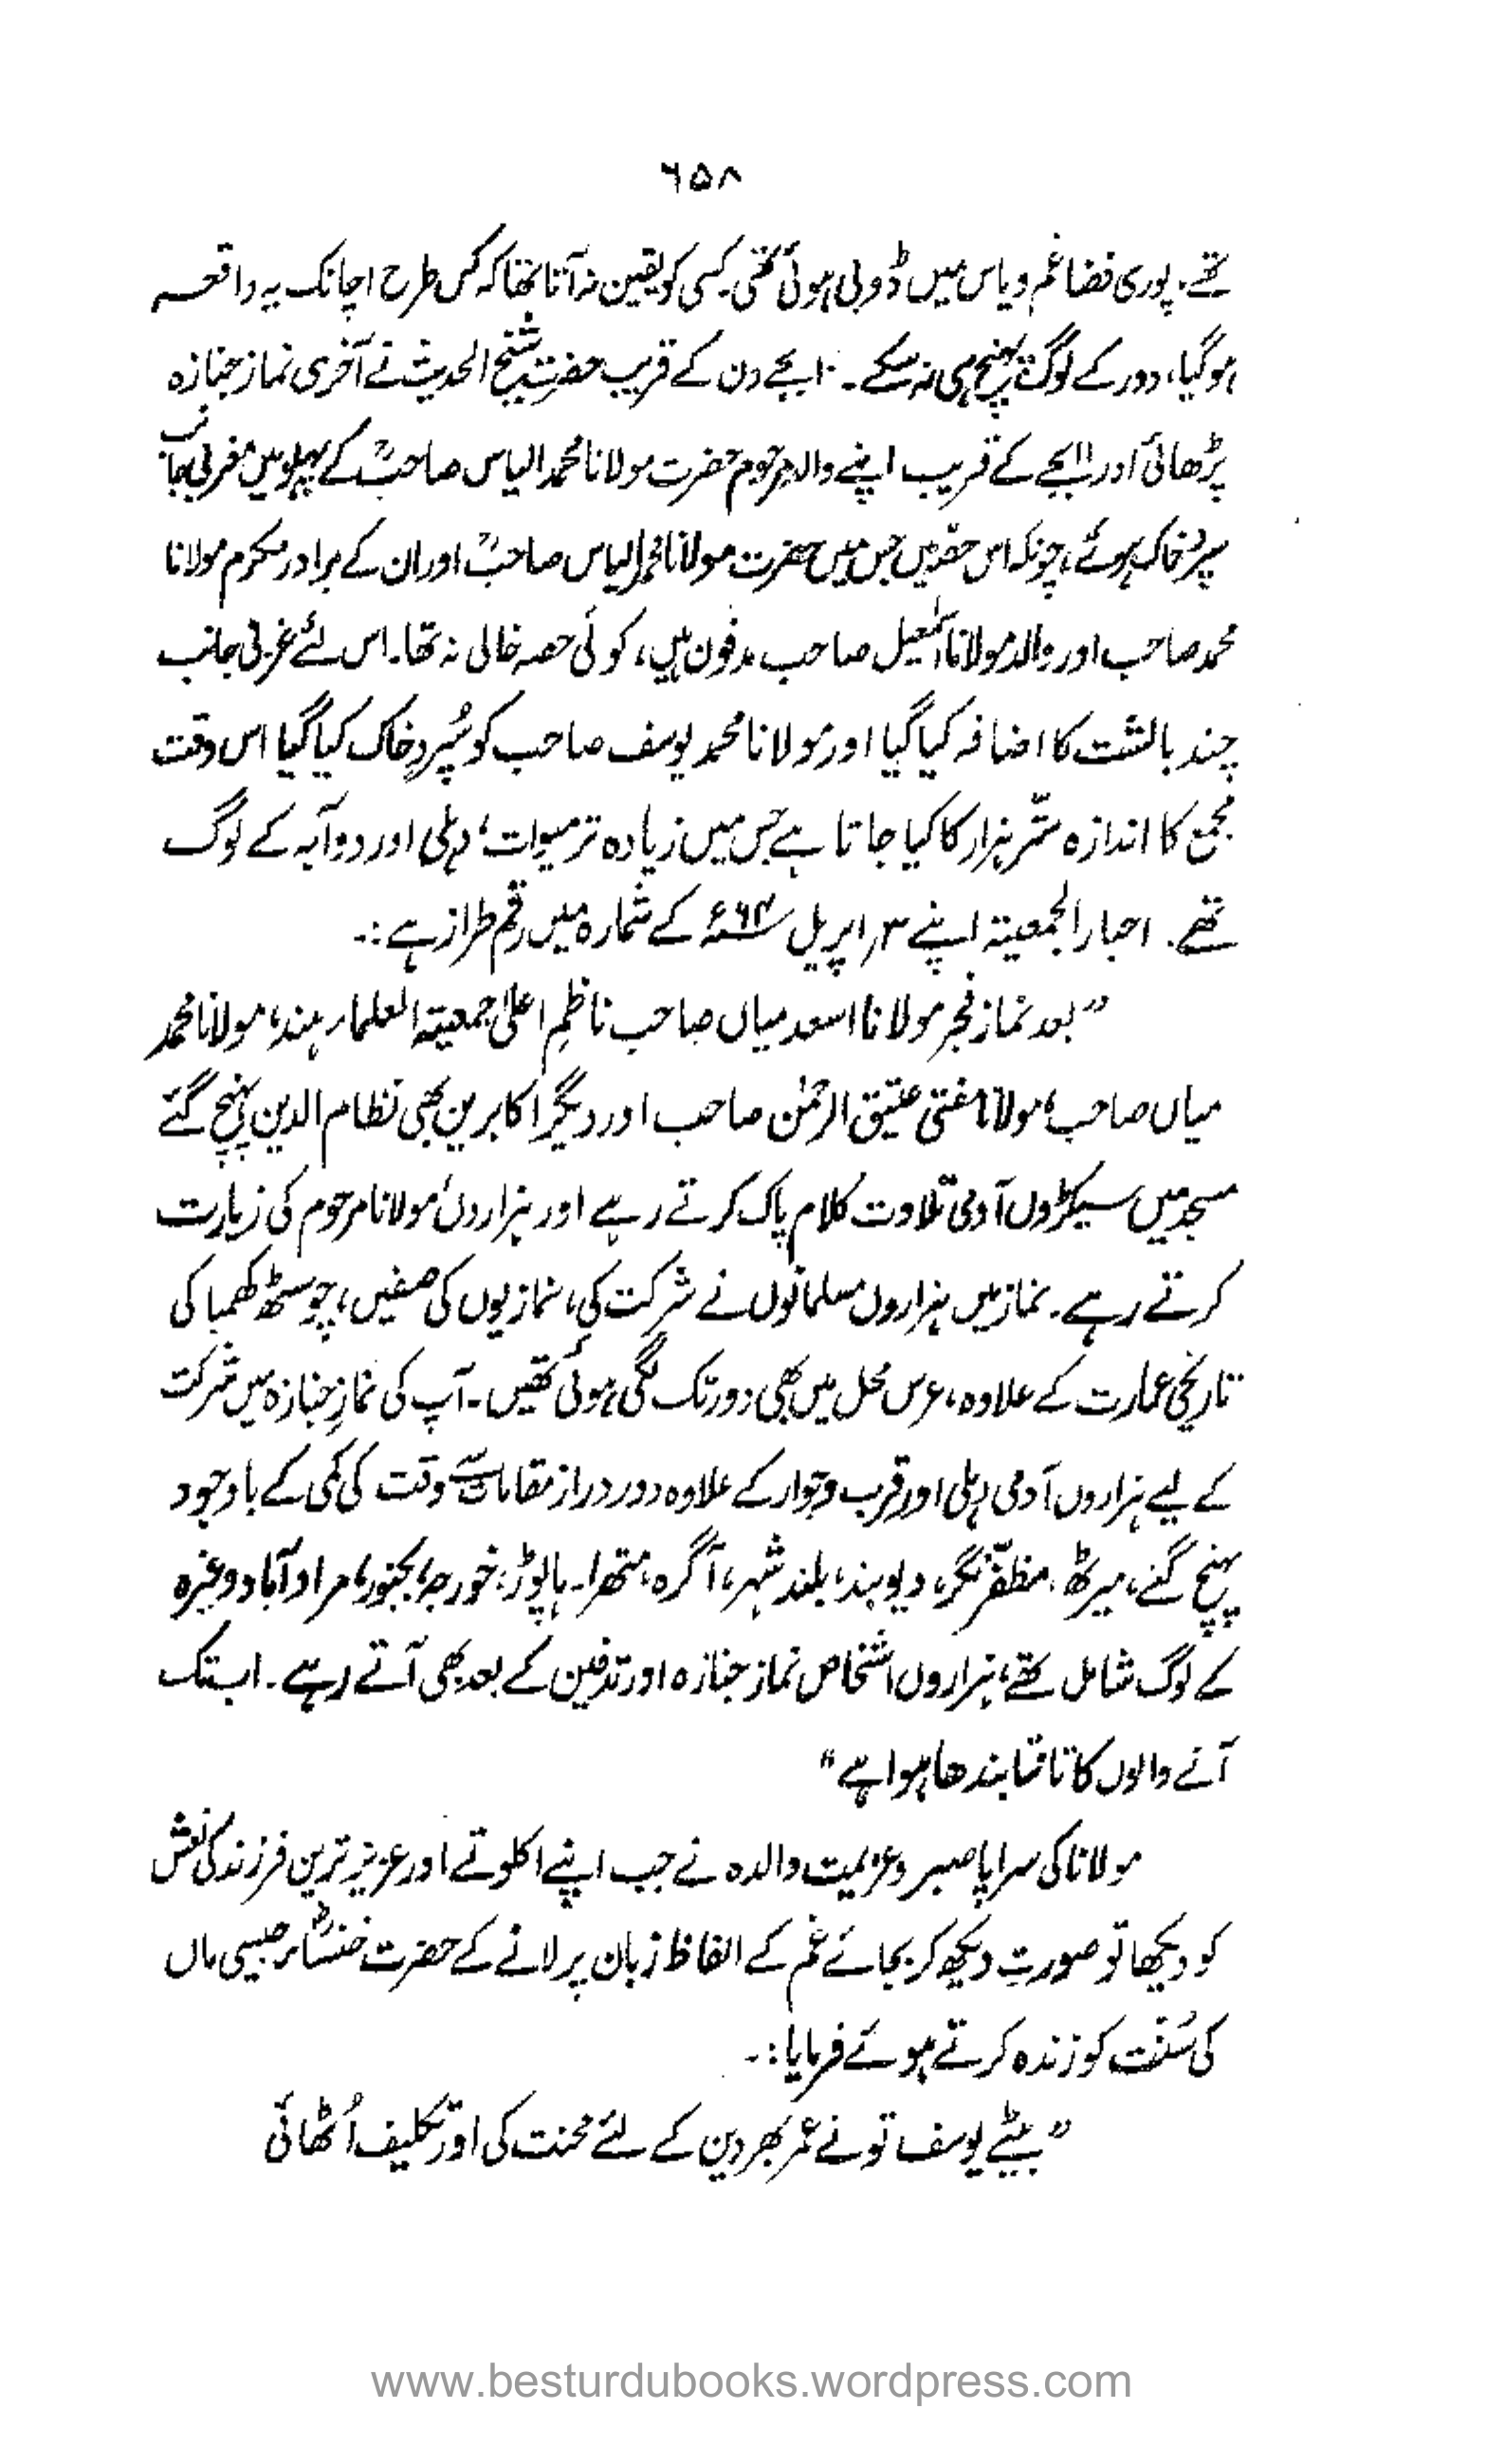 ۶۵۸
تھے۔ پوری فضا غم و یاس میں ڈوبی ہوئی تھی۔ کسی کو یقین نہ آتا تھا کہ کس طرح اچانک یہ واقعہ
ہوگیا، دور کے لوگ پہنچ ہی نہ سکے۔ ۱۰ بجے دن کے قریب حضرت شیخ الحدیث نے آخری نماز جنازہ
پڑھائی اور ۱۱ بجے کے قریب اپنے والد مرحوم حضرت مولانا محمد الیاس صاحبؒ کے پہلو میں مغربی جانب
سپرد خاک ہوئے، چونکہ اس حصّہ میں جس میں حضرت مولانا محمد الیاس صاحبؒ اور ان کے برادر مکرم مولانا
محمد صاحب اور والد مولانا اسمٰعیل صاحب مدفون ہیں، کوئی حصہ خالی نہ تھا۔ اس لئے غربی جانب
چند بالشت کا اضافہ کیا گیا اور مولانا محمد یوسف صاحب کو سُپردِ خاک کیا گیا اس وقت
مجمع کا اندازہ ستّر ہزار کا کیا جاتا ہے جس میں زیادہ تر میوات، دہلی اور دوآبہ کے لوگ
تھے۔ اخبار الجمعیۃ اپنے ۳؍ اپریل ۶۴ء کے شمارہ میں رقم طراز ہے:۔
”بعد نماز فجر مولانا اسعد میاں صاحب ناظمِ اعلیٰ جمعیۃ العلماء ہند، مولانا محمد
میاں صاحب، مولانا مفتی عتیق الرحمٰن صاحب اور دیگر اکابرین بھی نظام الدین پہنچ گئے
مسجد میں سیکڑوں آدمی تلاوت کلام پاک کرتے رہے اور ہزاروں مولانا مرحوم کی زیارت
کرتے رہے۔ نماز میں ہزاروں مسلمانوں نے شرکت کی، نمازیوں کی صفیں، چوسٹھ کھمبا کی
تاریخی عمارت کے علاوہ، عرس محل میں بھی دور تک لگی ہوئی تھیں۔ آپ کی نمازِ جنازہ میں شرکت
کے لیے ہزاروں آدمی دہلی اور قرب و جوار کے علاوہ دور دراز مقامات سے وقت کی کمی کے باوجود
پہنچ گئے، میرٹھ، مظفّر نگر، دیوبند، بلند شہر، آگرہ، متھرا۔ ہاپوڑ، خورجہ، بجنور، مراد آباد وغیرہ
کے لوگ شامل تھے، ہزاروں اشخاص نماز جنازہ اور تدفین کے بعد بھی آتے رہے۔ اب تک
آنے والوں کا تانتا بندھا ہوا ہے“
مولانا کی سراپا صبر و عزیمت والدہ نے جب اپنے اکلوتے اور عزیز ترین فرزند کی نعش
کو دیکھا تو صورت دیکھ کر بجائے غم کے الفاظ زبان پر لانے کے حضرت خنساءؓ جیسی ماں
کی سُنّت کو زندہ کرتے ہوئے فرمایا:۔
”بیٹے یوسف تو نے عمر بھر دین کے لئے محنت کی اور تکلیف اُٹھائی
www.besturdubooks.wordpress.com